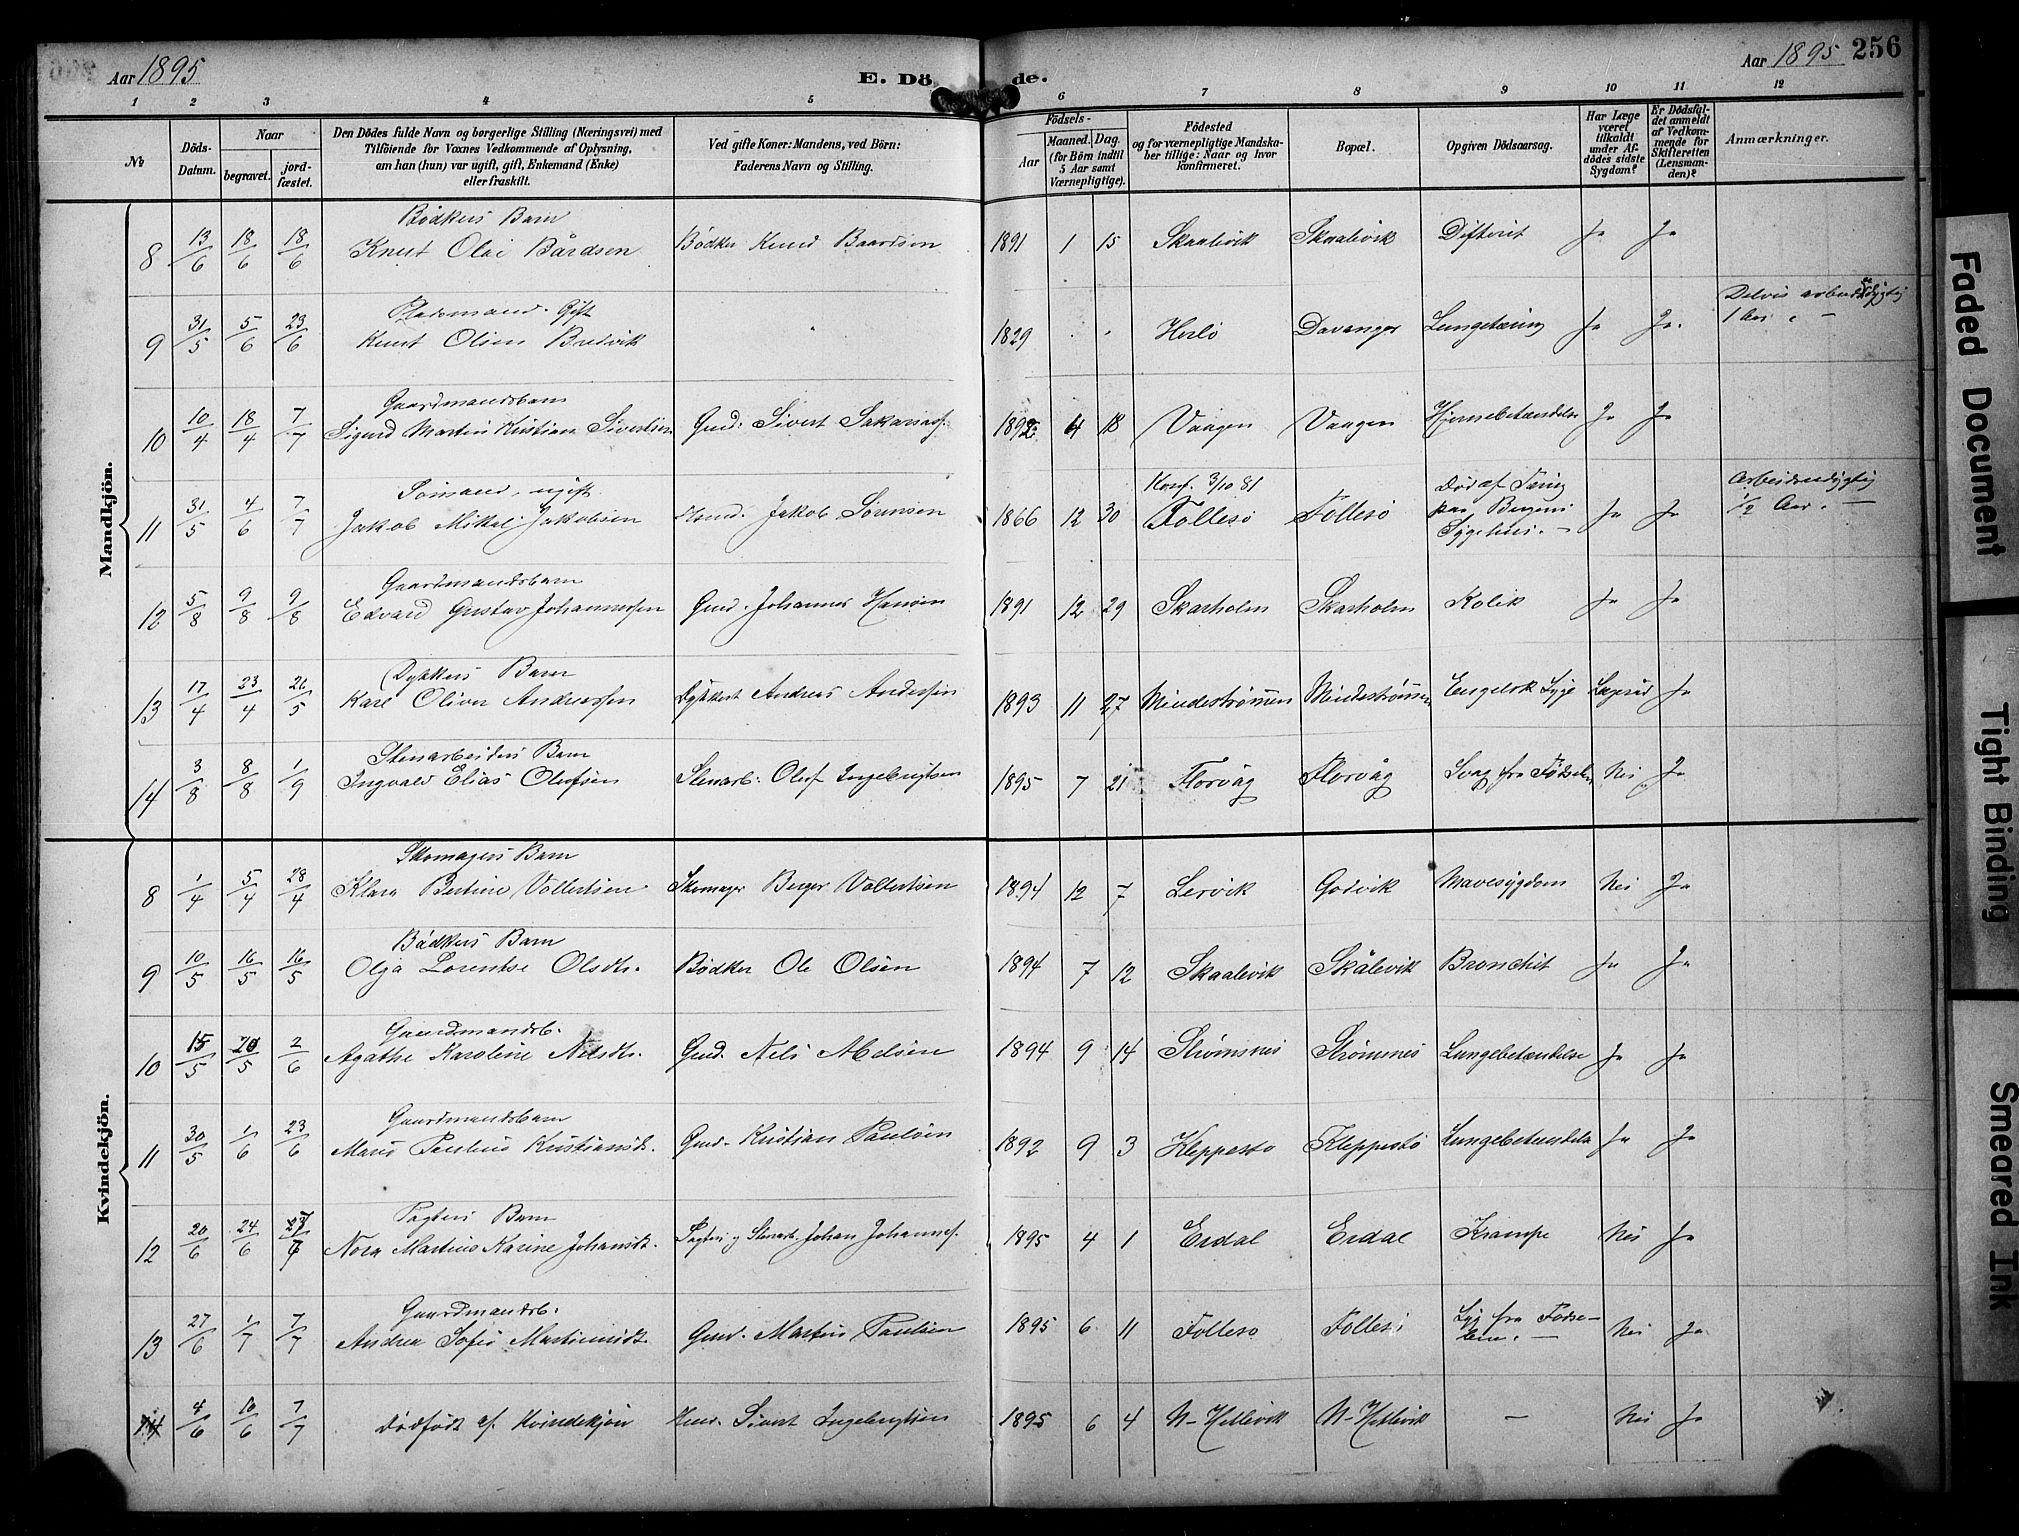 Aar 1895
E. Dö de.
Aar 1895 256
1 2 3 4 5 6 7 8 9 10 11 12
No
Döds-
Datum.
Naar
begravet.
jord-
fæstet.
Den Dödes fulde Navn og borgerlige Stilling (Næringsvei) med
Tilföiende for Voxnes Vedkommende af Oplysning,
om han (hun) var ugift, gift, Enkemand (Enke)
eller fraskilt.
Ved gifte Koner: Mandens, ved Börn:
Faderens Navn og Stilling.
Födsels-
Aar
Maaned. Dag.
(for Börn indtil
5 Aar samt
Værnepligtige).
Födested
og for værnepligtige Mandska-
ber tillige: Naar og hvor
konfirmeret.
Bopæl.
Opgiven Dödsaarsag.
Har Læge
været
tilkaldt
under Af-
dödes sidste
Sygdom?
Er Dödsfal-
det anmeldt
af Vedkom-
mende for
Skifteretten
(Lensman-
den)?
Anmærkninger.
Mandkjön.
Bödkers Barn
8 13/6 18/6 18/6 Knut Olai Bårdsen Bödker Knud Baardsen 1891 1 15 Skaalevik Skaalevik Difterit Ja Ja
Pladsmand. Gift
9 31/5 5/6 23/6 Knut Olsen Bredvik 1829 Herlö Davanger Lungetæring Ja Ja. Delvis arbeidsdygtig
1 Aar. —
Gaardmandsbarn
10 10/4 18/4 7/7 Sigurd Martin Kristian Sivertsen Gmd. Sivert Sakariass. 1892 4 18 Vaagen Vaagen Hjernebetændelse Ja Ja
Sömand, ugift.
11 31/5 4/6 7/7 Jakob Mikal Jakobsen Hmd. Jakob Sörensen 1866 12 30 Konf. 3/10 81
Follesö Follesö Död af Tæring
paa Bergens
Sygehus. — Ja Ja Arbeidsudygtig
1/2 Aar. —
Gaardmandsbarn
12 5/8 9/8 9/8 Edvard Gustav Johannessen Gmd. Johannes Hansen 1891 12 29 Skarholm Skarholm Kolik Ja Ja
Dykkers Barn
13 17/4 23/4 26/5 Karl Oliver Andreassen Dykkert Andreas Anderssen 1893 11 27 Mindeströmmen Mindeströmmen Engelsk Syge Lægeråd Ja
Stenarbeiders Barn
14 3/8 8/8 1/9 Ingvald Elias Olofsen Stenarb. Olof Ingebrigtsen 1895 7 21 Florvåg Florvåg Svag fra Födselen Nei Ja
Kvindekjön.
Skomagers Barn
8 1/4 5/4 28/4 Klara Bertine Vollertsen Skomager Berger Vollertsen 1894 12 7 Lervik Godvik Mavesygdom Nei Ja
Bödkers Barn
9 10/5 16/5 16/5 Olga Lorentse Olsdtr. Bödker Ole Olsen 1894 7 12 Skaalevik Skålevik Bronchit Ja Ja
Gaardmandsb.
10 15/5 20/5 2/6 Agathe Karoline Nilsdtr. Gmd. Nils Melsen 1894 9 14 Strömsnes Strömnes Lungebetændelse Ja Ja
Gaardmandsbarn
11 30/5 1/6 23/6 Marie Pauline Kristiansdt. Gmd. Kristian Paulsen 1892 9 3 Kleppestö Kleppestö Lungebetændelse Ja Ja
Pagters Barn
12 20/6 24/6 Nora Martine Karine Johansdt. Pagter og Stenarb. Johan Johannes. 1895 4 1 Erdal Erdal Krampe Nei Ja
Gaardmandsb.
13 27/6 1/7 7/7 Andrea Sofie Martinusdt. Gmd. Martin Paulsen 1895 6 11 Follesö Follesö Syg fra Födse-
len. — Nei Ja
14 4/6 10/6 7/7 Dödfödt af Kvindekjön Hmd. Sivert Ingebrigtsen 1895 6 4 N-Hetlevik N-Hetlevik — Nei Ja
Faded Document
Tight Binding
Smeared Ink